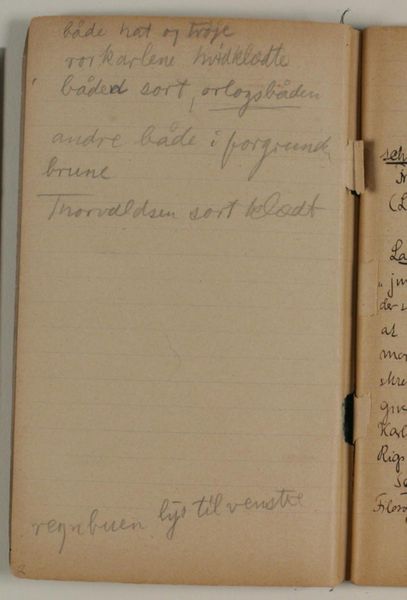 både hat og trøje
rorkarlene hvidklædte
båden sort, orlogsbåden
andre både i forgrunden
brune
Thorvaldsen sort klædt
regnbuen lys til venstre
sch
(L
La
"ju
der
at
mor
skre
give
Karl
Rigs
Filoso